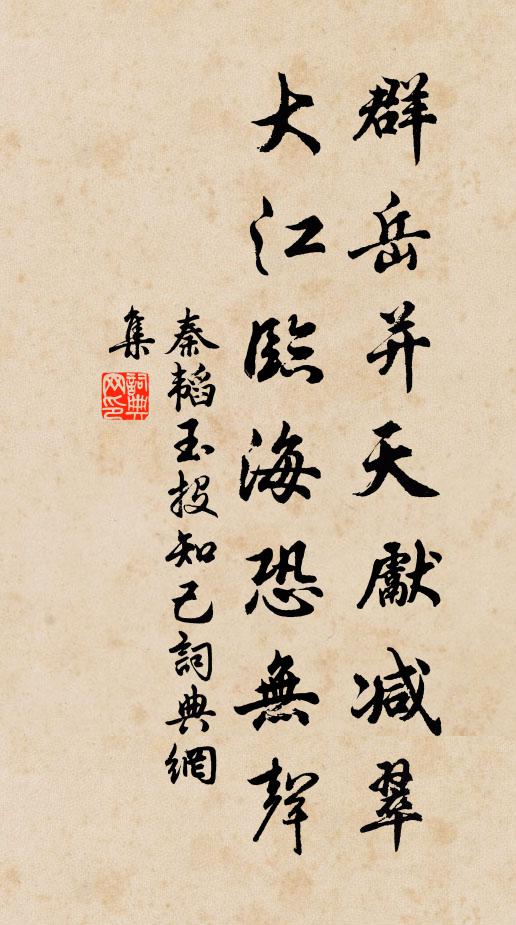 群岳并天獻减翠
大江臨海恐無聲
秦韜玉投知己詞典網
集
詞典
网印